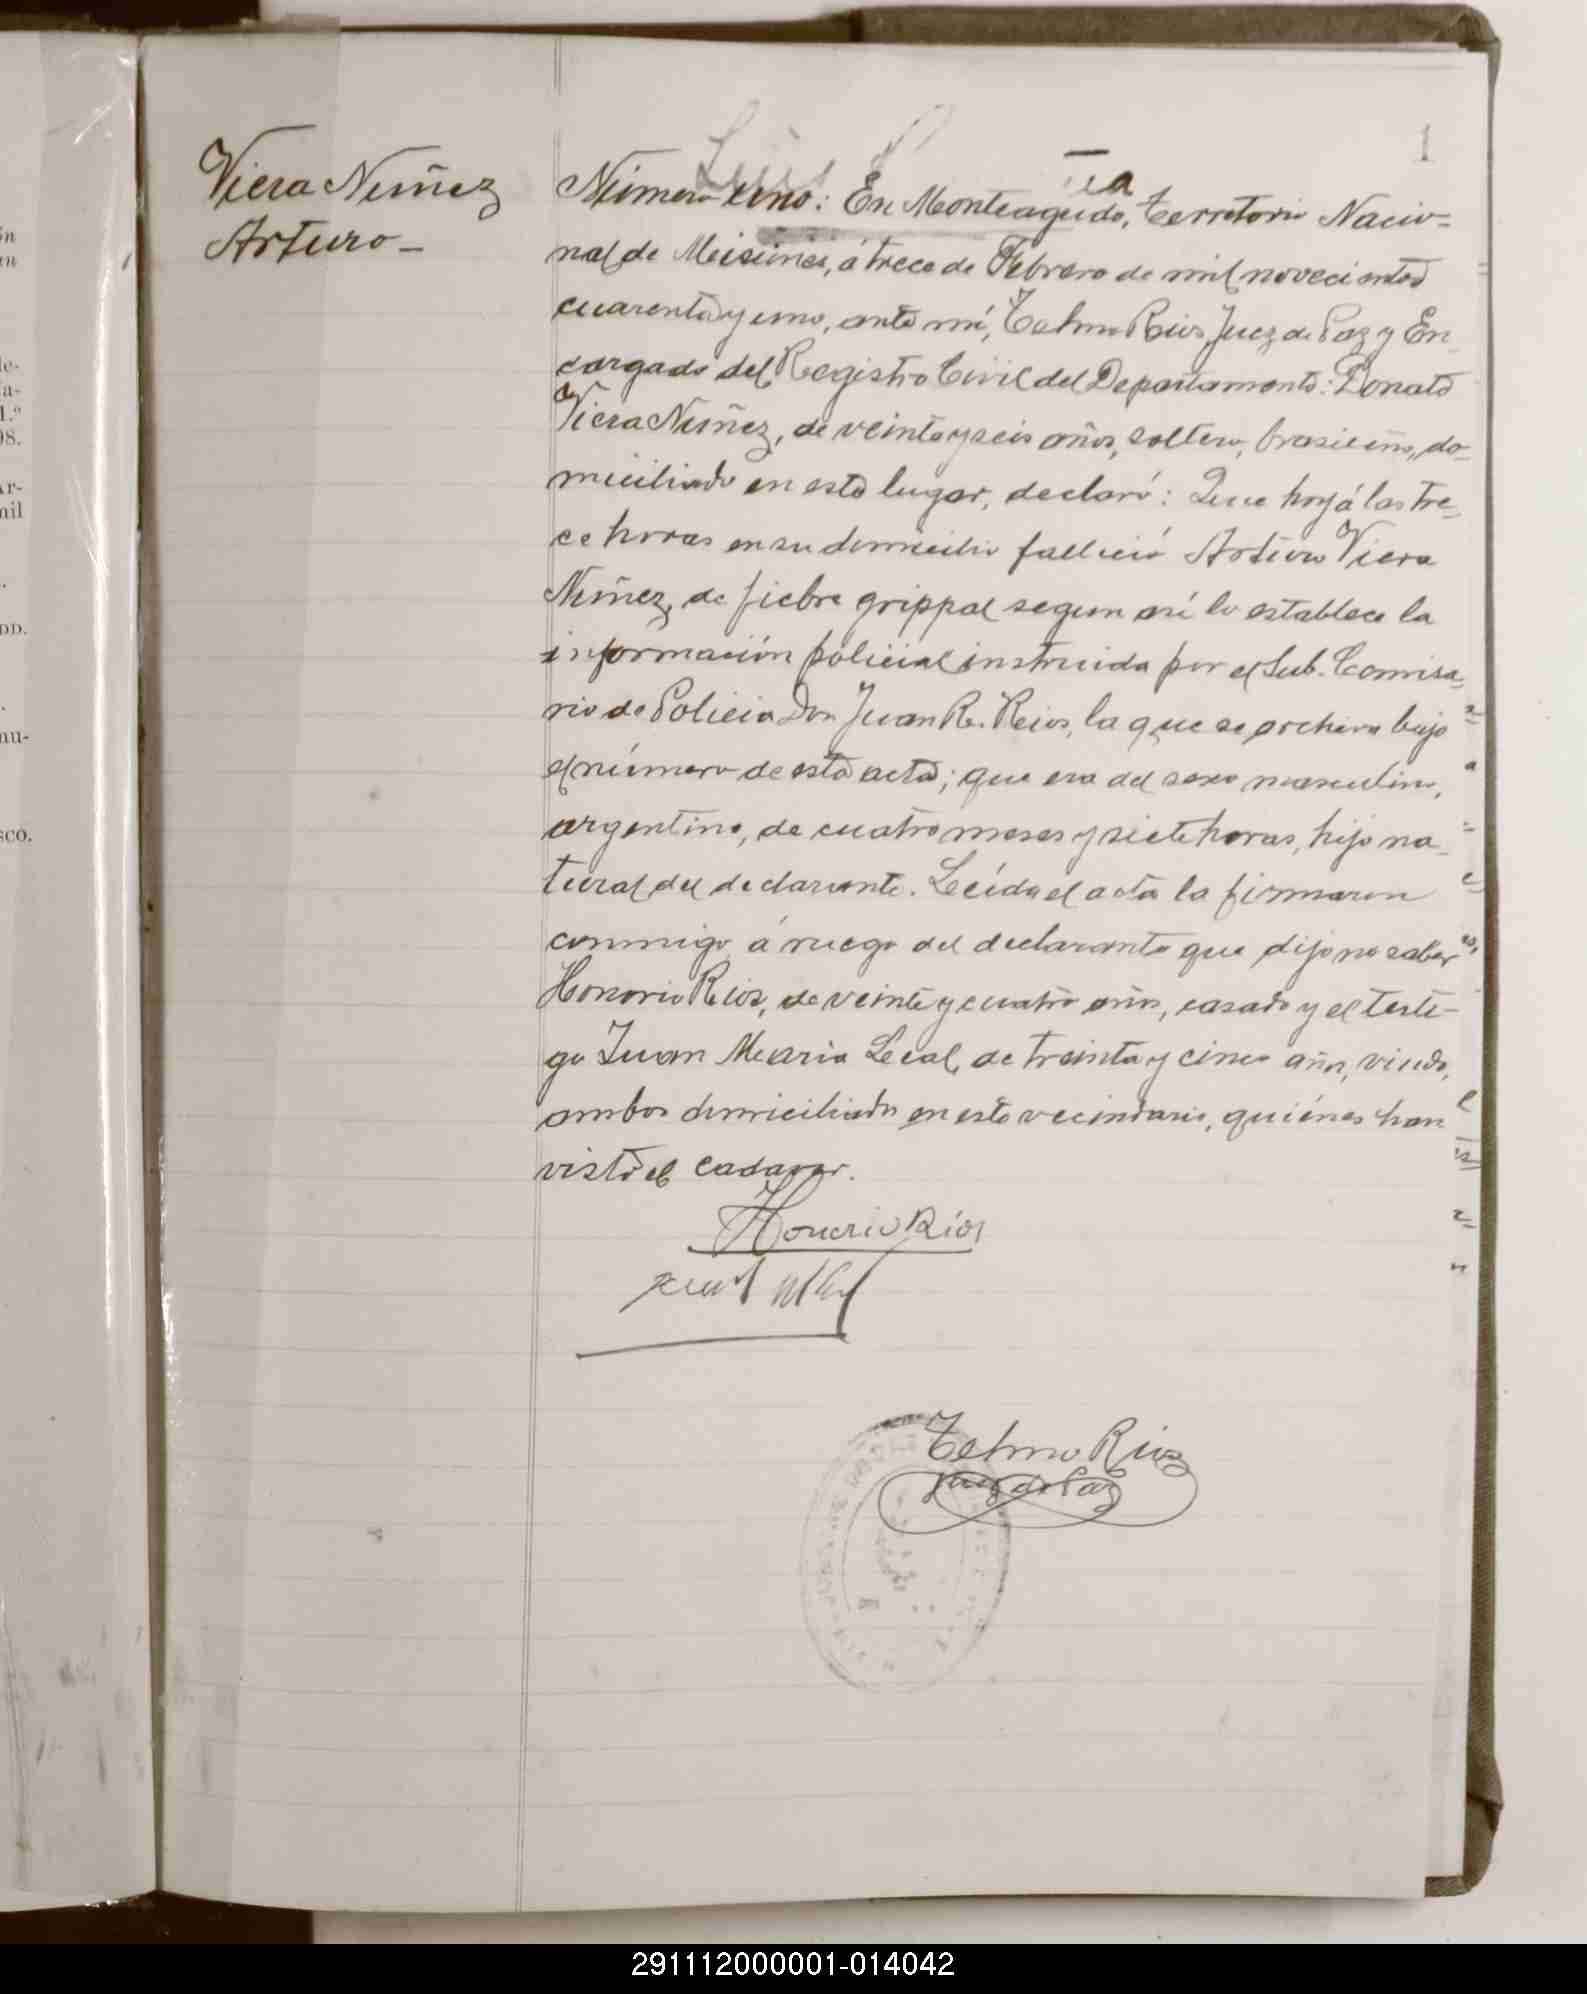 1
Viera Nuñez
Arturo
Número uno: En Monteagudo, territorio Nacio-
nal de Misiones, á trece de Febrero de mil novecientos
cuarenta y uno, ante mí, Telmo Rios, Juez de Paz y En-
cargado del Registro Civil del Departamento: Donato
Viera Nuñez, de veinte y seis años, soltero, brasileño, do-
miciliado en este lugar, declaró: Que hoy á las tre-
ce horas en su domicilio falleció Arturo Viera
Nuñez, de fiebre grippal segun así lo establece la
información policial instruida por el Sub-Comisa-
rio de Policia Don Juan R. Rios, la que se archiva bajo
el número de esta acta; que era del sexo masculino,
argentino, de cuatro meses y siete horas, hijo na-
tural del declarante. Leída el acta la firmaron
conmigo á ruego del declarante que dijo no saber
Honorio Rios, de veinte y cuatro años, casado y el testi-
go Juan Maria Leal, de treinta y cinco años, viudo,
ambos domiciliados en este vecindario, quiénes han
visto el cadaver.
Honorio Ríos
Telmo Rios
Juez de Paz
291112000001-014042